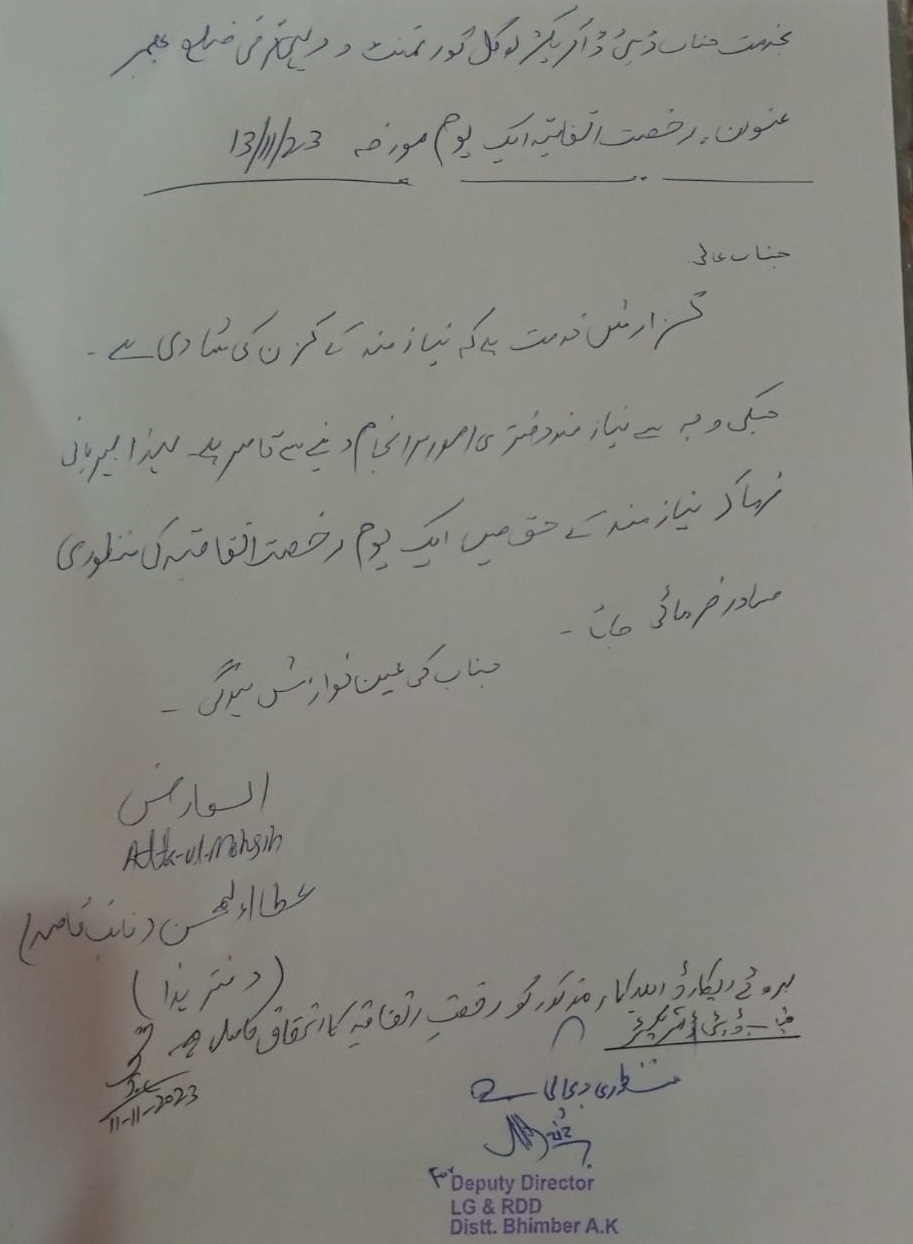 بخدمت جناب ڈپٹی ڈائریکٹر لوکل گورنمنٹ و دیہی ترقی ضلع بھمبر
عنوان:۔ رخصت اتفاقیہ ایک یوم مورخہ 13/11/23
جناب عالی
گزارش خدمت ہے کہ نیازمند کے کزن کی شادی ہے ۔
جسکی وجہ سے نیازمند دفتری امور سرانجام دینے سے قاصر ہے۔ لہذا مہربانی
فرما کر نیازمند کے حق میں ایک یوم رخصت اتفاقیہ کی منظوری
صادر فرمائی جائے ۔
جناب کی عین نوازش ہوگی ۔
العارض
Atta-ul-Mohsin
عطاء المحسن (نائب قاصد)
(دفتر ہذا)
بروئے ریکارڈ اہلکار مذکور کو رخصت اتفاقیہ کا استحقاق حاصل ہے
جناب ڈپٹی ڈائریکٹر
11-11-2023
منظوری دی جاتی ہے
For Deputy Director
LG & RDD
Distt. Bhimber A.K